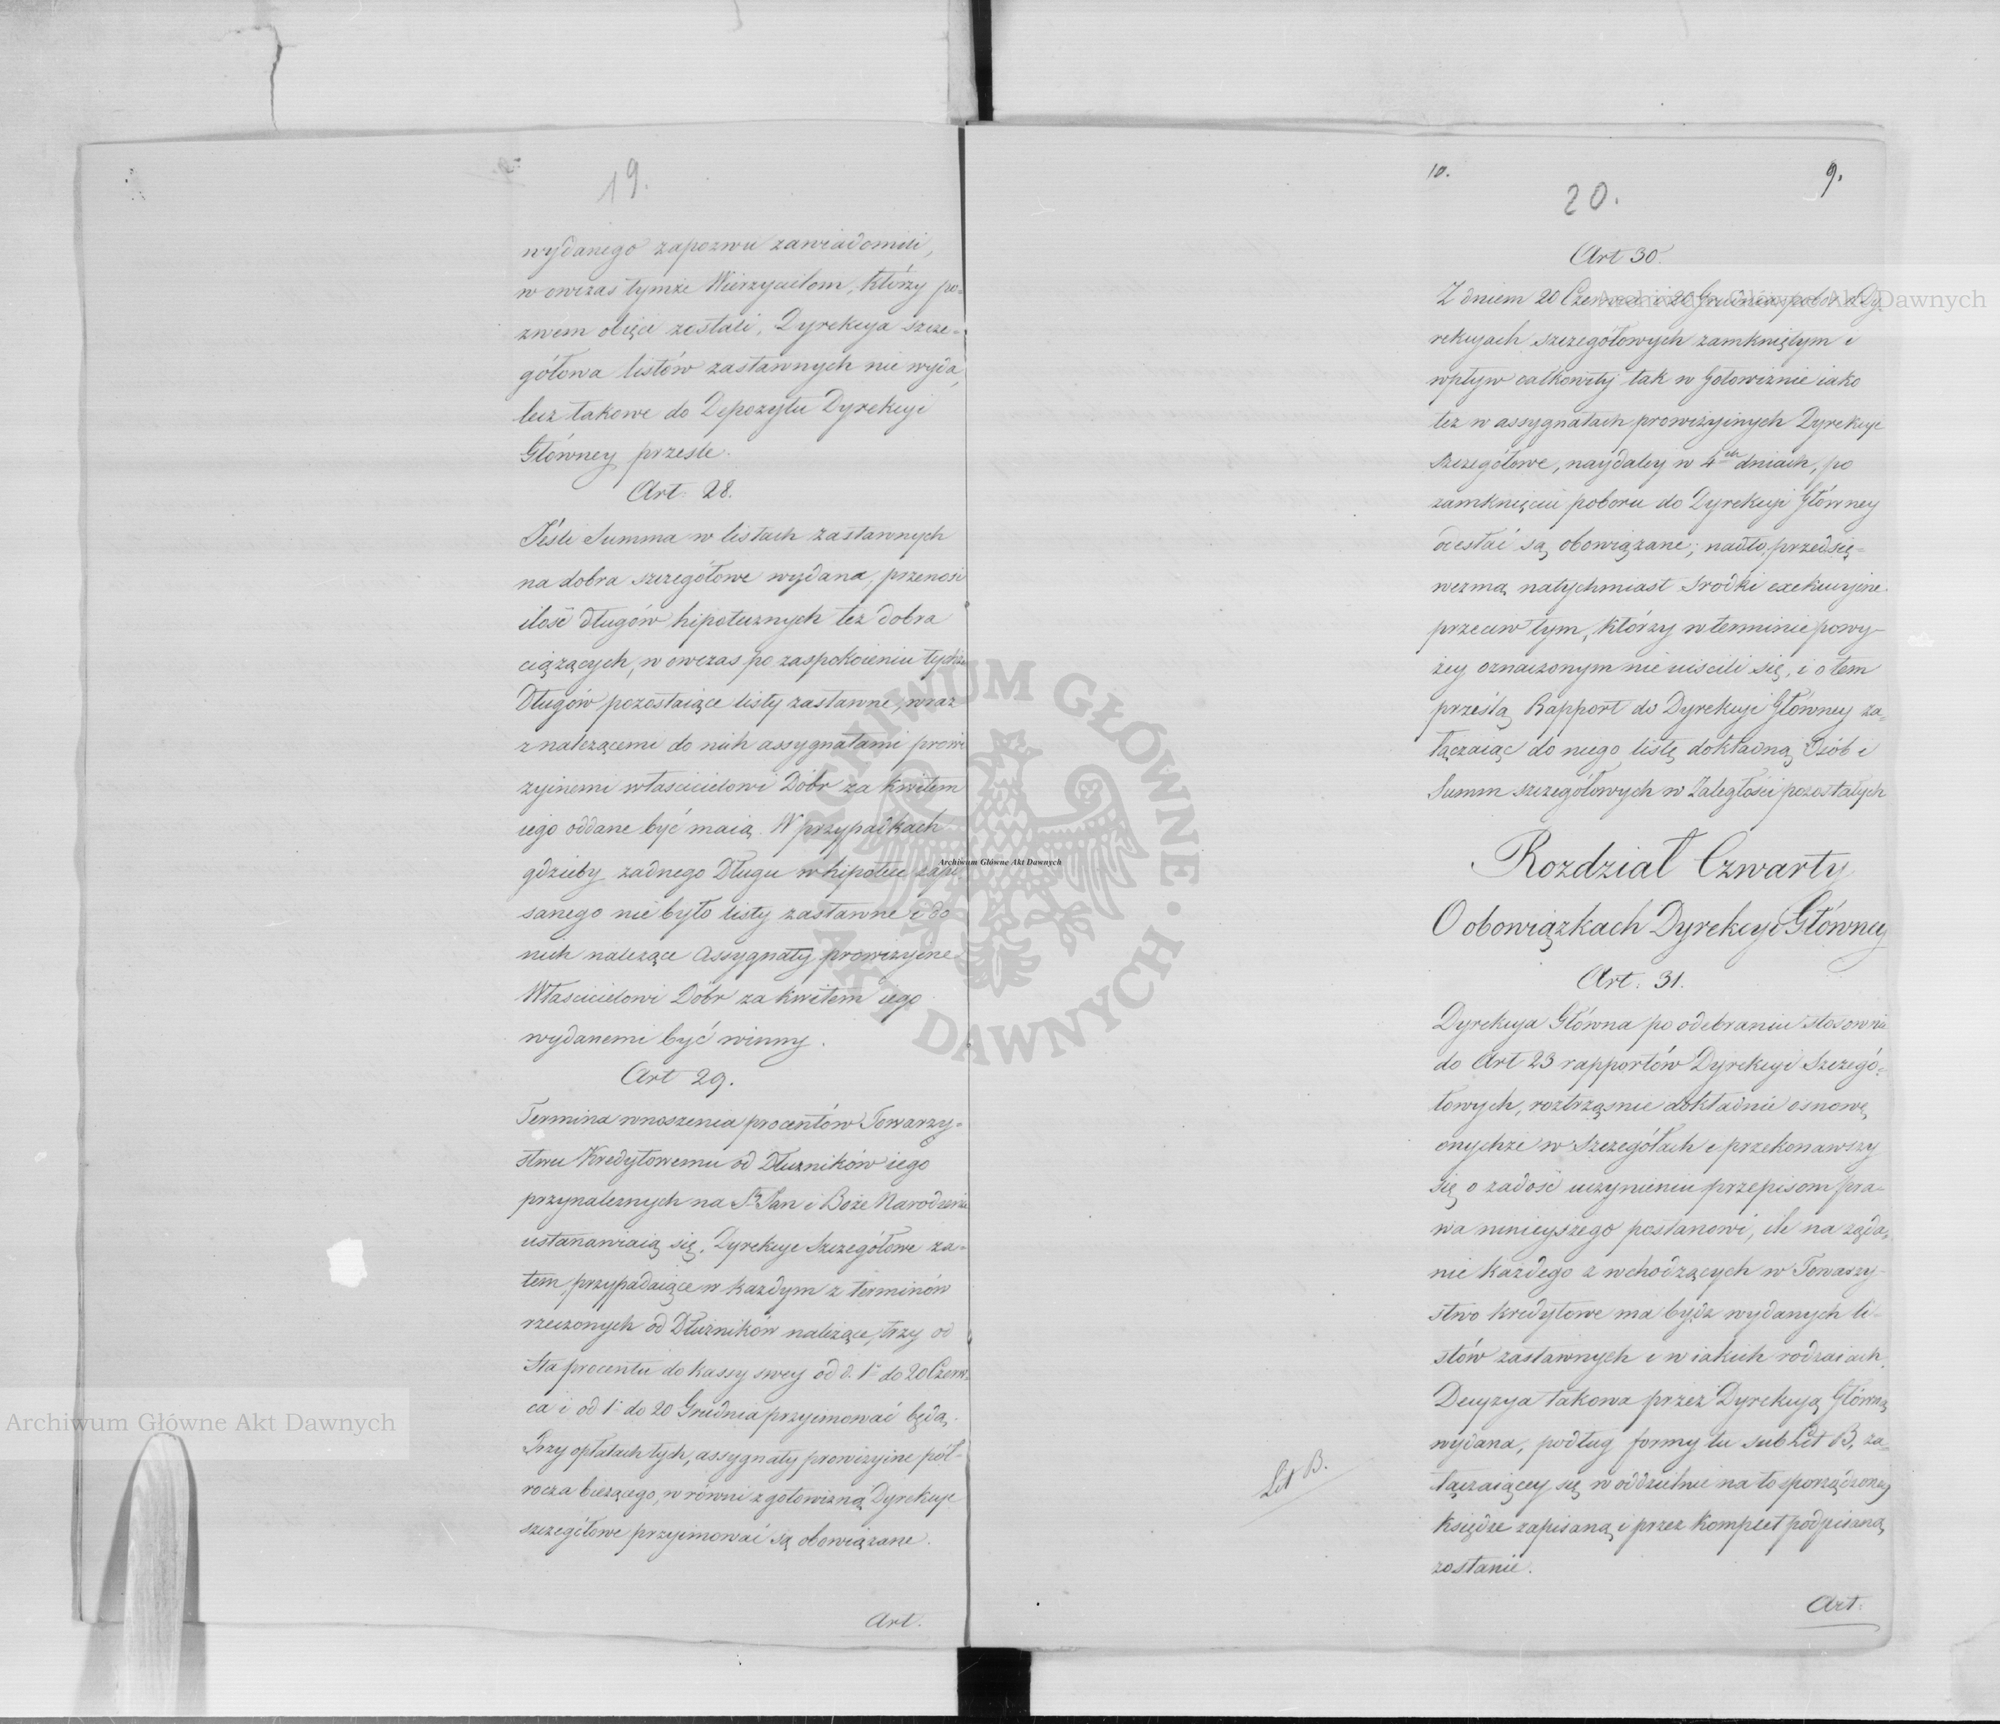 19.
wydanego zapozwu zawiadomili,
w owczas tymże Wierzycielom, którzy po-
zwem obięci zostali, Dyrekcya szcze-
gółowa listów zastawnych nie wyda,
lecz takowe do Depozytu Dyrekcyi
Główney prześle.
Art 28.
Jeśli Summa w listach zastawnych
na dobra szczegółowe wydana, przenosi
ilość długów hipotecznych też dobra
ciążących, w owczas po zaspokoieniu tychże
Długów pozostaiące listy zastawne, wraz
z należącemi do nich assygnatami prowi
zyinemi właścicielowi Dóbr za kwitem
iego oddane być maią. W przypadkach
gdzieby żadnego Długu w hipotece zapi
sanego nie było listy zastawne i do
nich należące assygnaty prowizyine
Właścicielowi Dóbr za kwitem iego
wydanemi być winny.
Art 29.
Termina wnoszenia procentów Towarzy-
stwu Kredytowemu od Dłużników iego
przynależnych na S. Jan i Boże Narodzenie
ustanawiaią się. Dyrekcye Szczegółowe za-
tem, przypadaiące w każdym z terminów
rzeczonych od Dłużników należące, trzy od
sta procentu do kassy swey od d. 1 do 20 Czerw-
ca i od 1 do 20 Grudnia przyimować będą.
Przy opłatach tych, assygnaty prowizyine pół-
rocza bieżącego, w równi z gotowizną Dyrekcye
szczegółowe przyimować są obowiązane.
Art.
10.
9.
20.
Art 30.
Z dniem 20 Czerwca i 20 Grudnia, pobór w Dy
rekcyach szczegółowych zamkniętym i
wpływ całkowity tak w Gotowiznie iako
też w assygnatach prowizyinych Dyrekcye
szczegółowe, naydaley w 4ch dniach, po
zamknięciu poboru do Dyrekcyi Główney
odesłać są obowiązane; nadto przedsię-
wezmą natychmiast srodki exekucyine
przeciw tym, którzy w terminie powy-
żey oznaczonym nie uiscili się, i o tem
prześlą Rapport do Dyrekcyi Główney za-
łączaiąc do niego listę dokładną Osób i
Summ szczegółowych w Zaległości pozostałych
Rozdział Czwarty
O obowiązkach Dyrekcyi Główney
Art. 31.
Dyrekcya Główna po odebraniu stosownie
do Art 23 rapportów Dyrekcyi Szczegó-
łowych, roztrząsnie dokładnie osnowę
onychże w Szczegółach i przekonawszy
się o zadość uczynieniu przepisom pra-
wa ninieyszego postanowi, ile na żąda-
nie każdego z wchodzących w Towarzy-
stwo kredytowe ma bydz wydanych li-
stów zastawnych i w iakich rodzaiach.
Decyzya takowa przez Dyrekcyą Główną
wydana, podług formy tu sub Lit B, za-
łączaiącey się w oddzielnie na to sporządzoney
księdze zapisaną i przez komplet podpisaną
zostanie.
Lit B.
Art.
Archiwum Główne Akt Dawnych
Archiwum Główne Akt Dawnych
Archiwum Główne Akt Dawnych
ARCHIWUM GŁÓWNE · AKT DAWNYCH ·